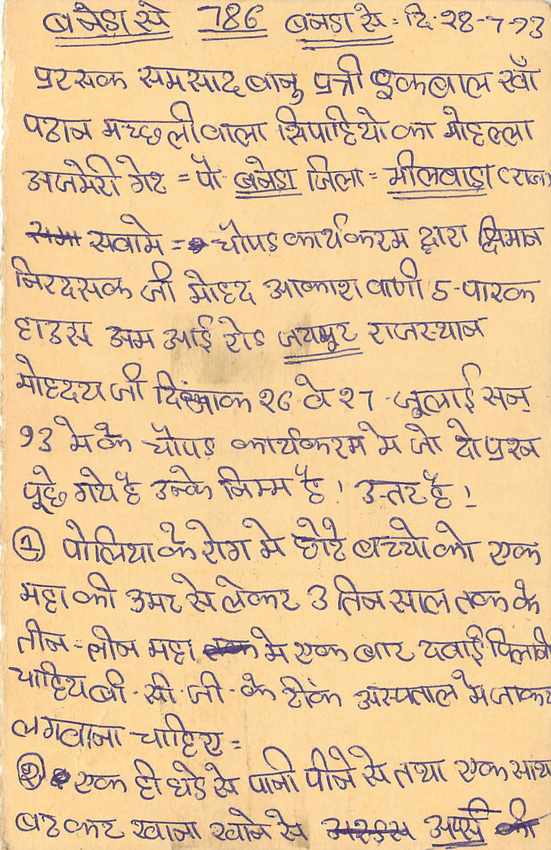 बनेडा से 786 बनेडा से = दि. 28-7-93
प्ररसक समसाद बानु पुत्री इकबाल खाँ
पठान मच्छली वाला सिपाहियो का मोहल्ला
अजमेरी गेट = पो बनेडा जिला = भीलवाडा (राज)
सवामे = चौपड कार्यकरम द्वारा श्रिमान
निरदसक जी मोहद आकाशवाणी 5-पारक
हाउस अम आई रोड जयपुर राजस्थान
मोहदय जी दिनांक 26 वे 27 जुलाई सन्
93 मे के चौपड कार्यकरम मे जो दो प्रश्न
पूछे गये है उन्के निम्म है! उत्तर है!
① पोलियो के रोग मे छोटे बच्चो को एक
महा की उमर से लेकर 3 तिन साल तक के
तीन-तीन महा मे एक बार दवाई पिलानी
चाहिए बी.सी.जी. के टीके अस्पताल मे जाकर
लगवाना चाहिए =
② एक ही घडे से पानी पीने से तथा एक साथ
बठकर खाना खाने से